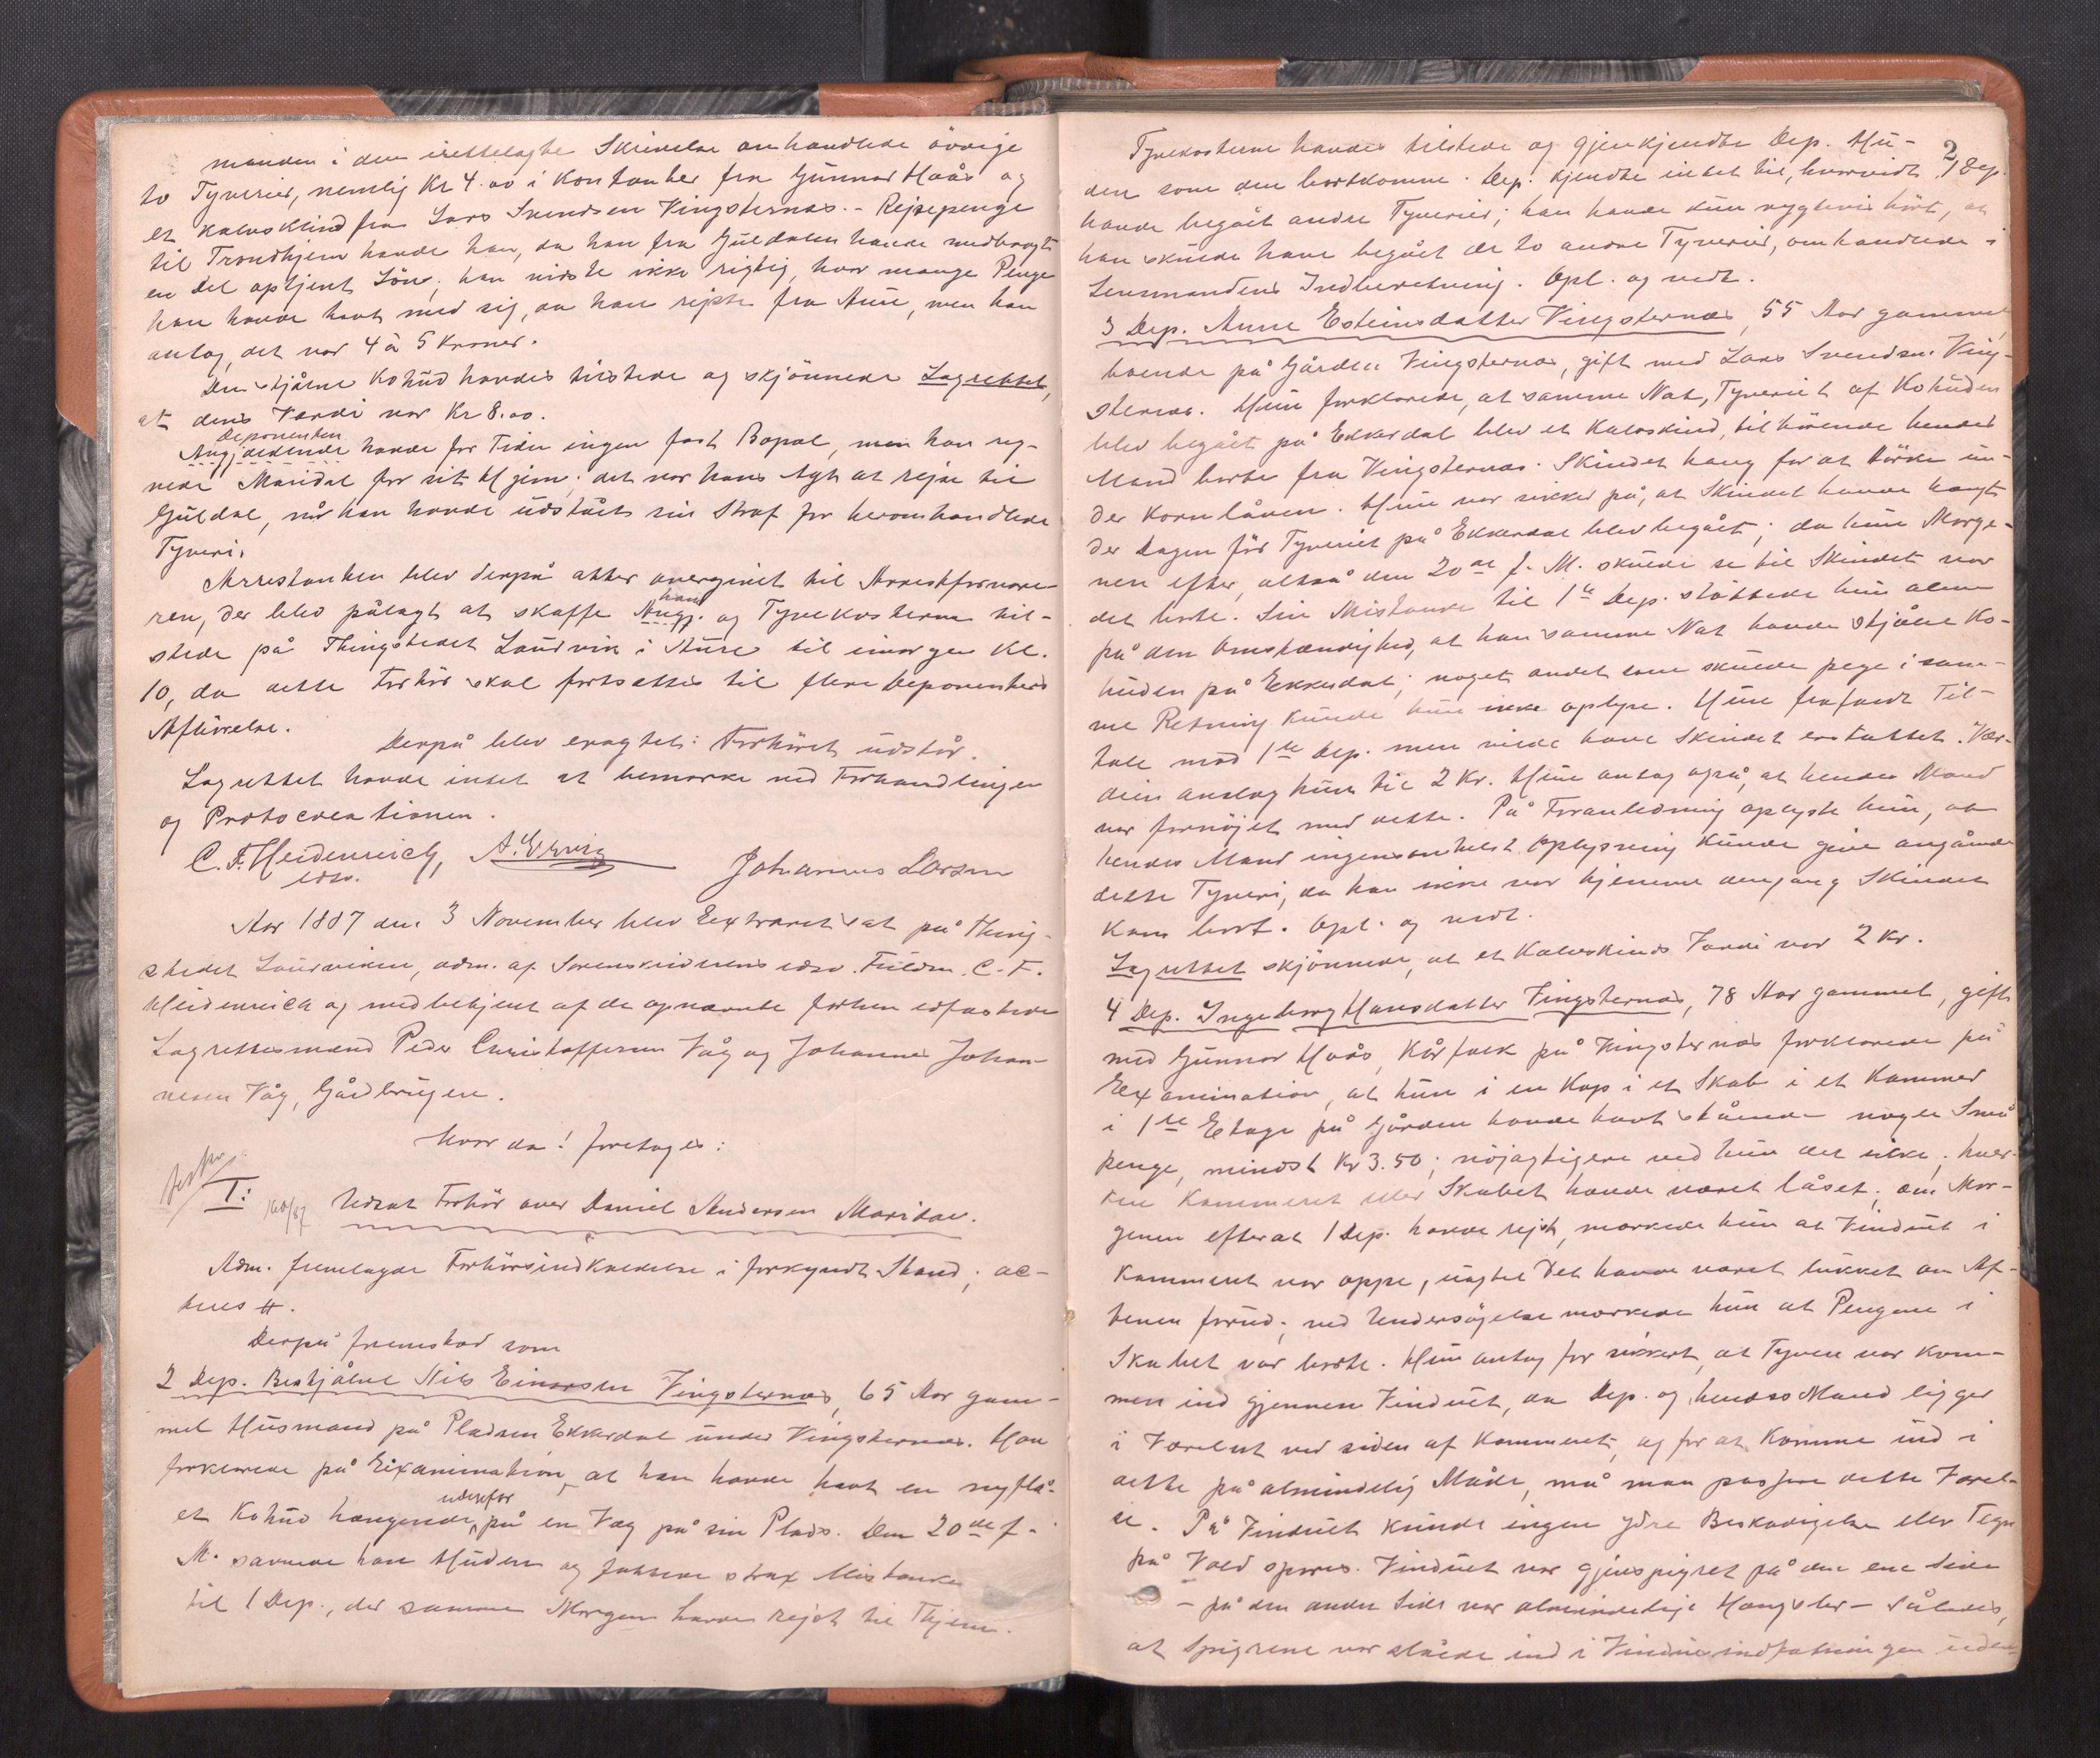 manden i den irettelagte Skrivelse omhandlede övrige
to Tyverier, nemlig Kr 4.00 i Kontanter fra Gunnar Haås og
et Kalvskind fra Lars Svendsen Vingsternæs. - Rejsepenge
til Trondhjem havde han, da han fra Guldalen havde medbragt
en Del optjent Lön; han vidste ikke rigtig, hvor mange Penge
han havde havt med sig, da han rejste fra Aure, men han
antog, det var 4 à 5 Kroner.
Den stjålne Kohud havdes tilstede og skjönnede Lagrettet,
at dens Værdi var Kr 8.00.
Deponenten
Angjældende havde for Tiden ingen fast Bopæl, men han reg-
nede Maridal for sit Hjem; det var hans Agt at rejse til
Guldal, når han havde udstået sin Straf for heromhandlede
Tyveri.
Arrestanten blev derpå atter overgivet til Arrestforvare-
ren, der blev pålagt at skaffe Angj. og Tyvekosterne til-
ham
stede på Thingstedet Laurvik i Aure til imorgen Kl.
10, da dette Forhör skal fortsættes til flere Deponenters
Afhörelse.
Derpå blev eragtet: Forhöret udstår.
Lagrettet havde intet at bemærke ved Forhandlingen
og Protocollationen.
C. F. Heidenreich, A. Ervig Johannes Larsen
edsv.
Aar 1887 den 3 November blev Extraret sat på Thing-
stedet Laurviken, adm. af Sorenskriverens edsv. Fuldm. C. F.
Heidenreich og medbetjent af de opnævnte forhen edfæstede
Lagrettesmænd Peder Christoffersen Våg og Johannes Johan-
nesen Våg, Gårdbrugere.
Hvorda! foretoges:
I: 160/87 Udsat Forhör over Daniel Andersen Maridal.
Adm. fremlagde Forhörsindkaldelse i forkyndt Stand; ac-
teres #.
Derpå fremstod som
2 Dep. Bestjålne Nils Einarsen Vingsternæs, 65 Aar gam-
mel Husmand på Pladsen Ekkerdal under Vingsternæs. Han
forklarede på Examination, at han havde havt en nyflå-
udenfor
et Kohud hængende på en Væg på sin Plads. Den 20de f.
M. savnede han Huden og fattede strax Mistanke
til 1 Dep., der samme Morgen havde rejst til Thjem.
2
Tyvekosterne havdes tilstede og gjenkjendte Dep. Hu-
den som den bortkomne. Dep. kjendte intet til, hvorvidt 1 Dep.
havde begået andre Tyverier; han havde kun rygtevis hört, at
han skulde have begået de to andre Tyverier, omhandlede i
Lensmandens Indberetning. Opl. og vedt.
3 Dep. Anne Esteinsdatter Vingsternæs, 55 Aar gammel,
boende på Gården Vingsternæs, gift med Lars Svendsen Ving-
sternæs. Hun forklarede, at samme Nat, Tyveriet af Kohuden
blev begået på Ekkerdal blev et Kalvskind, tilhörende hendes
Mand borte fra Vingsternæs. Skindet hang for at törke un-
der Kornlåven. Hun var sikker på, at Skindet havde hængt
der Dagen för Tyveriet på Ekkerdal blev begået; da hun Morge-
nen efter, altså den 20de f. M. skulde se til Skindet var
det borte. Sin Mistanke til 1ste Dep. støttede hun alene
på den Omstændighed, at han samme Nat havde stjålet Ko-
huden på Ekkerdal; noget andet som skulde pege i sam-
me Retning kunde hun ikke oplyse. Hun frafaldt Til-
tale mod 1ste Dep. men vilde have Skindet erstattet. Vær-
dien anslog hun til 2 Kr. Hun antog også, at hendes Mand
var fornöjet med dette. På Foranledning oplyste hun, at
hendes Mand ingensomhelst Oplysning kunde give angående
dette Tyveri, da han ikke var hjemme dengang Skindet
kom bort. Opl. og vedt.
Lagrettet skjönnede, at et Kalvskinds Værdi var 2 Kr.
4 Dep. Ingeborg Hansdatter Vingsternæs, 78 Aar gammel, gift
med Gunnar Haås, Kårfolk på Vingsternæs forklarede på
Examination, at hun i en Kop i et Skab i et Kammer
i 1ste Etage på Gården havde havt stående nogle Små-
penge, mindst Kr 3.50; nöjagtigere ved hun det ikke; hver-
ken Kammeret eller Skabet havde været låset; om Mor-
genen efterat 1 Dep. havde rejst, mærkede hun at Vinduet i
Kammeret var oppe, uagtet det havde været lukket om Af-
tenen forud; ved Undersögelse mærkede hun at Pengene i
Skabet var borte. Hun antog for sikkert, at Tyven var kom-
men ind gjennem Vinduet, da Dep. og hendes Mand ligger
i Værelset ved siden af Kammeret, og for at komme ind i
dette på almindelig Måde, må man passere dette Værel-
se. På Vinduet kunde ingen ydre Beskadigelse eller Tegn
på Vold spores. Vinduet var gjenspigret på den ene Side
- på den anden Side var almindelige Hængsler - således,
at Spigrene var slåede ind i Vinduesindfatningen uden-